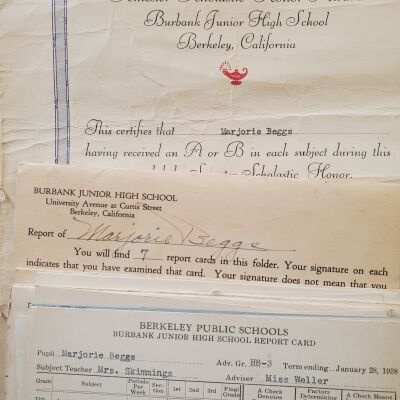 Semester Scholastic Honor Award
Burbank Junior High School
Berkeley, California
This certifies that Marjorie Beggs
having received an A or B in each subject during this
Scholastic Honor.
BURBANK JUNIOR HIGH SCHOOL
University Avenue at Curtis Street
Berkeley, California
Report of Marjorie Beggs
You will find 7 report cards in this folder. Your signature on each
indicates that you have examined that card. Your signature does not mean that you
BERKELEY PUBLIC SCHOOLS
BURBANK JUNIOR HIGH SCHOOL REPORT CARD
Pupil Marjorie Beggs Adv. Gr. H8-3 Term ending January 28, 1928
Subject Teacher Mrs. Skimmings Adviser Miss Weller
Grade Subject Periods Per Week Section 1st 2nd 3rd Final Grade A Check Denotes Factors Determining A Check Means